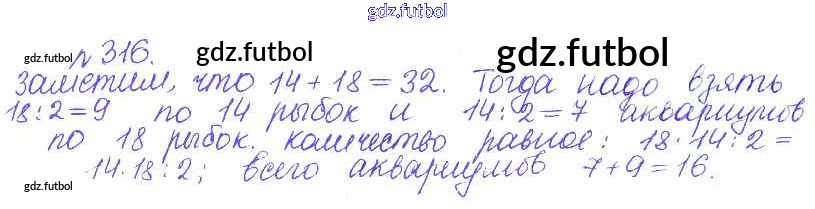 gdz.futbol
gdz.futbol № 316. gdz.futbol gdz.futbol
Заметим, что 14 + 18 = 32. Тогда надо взять
18 : 2 = 9 по 14 рыбок и 14 : 2 = 7 аквариумов
по 18 рыбок. Количество равное: 18 · 14 : 2 =
14 · 18 : 2; всего аквариумов 7 + 9 = 16.
gdz.futbol